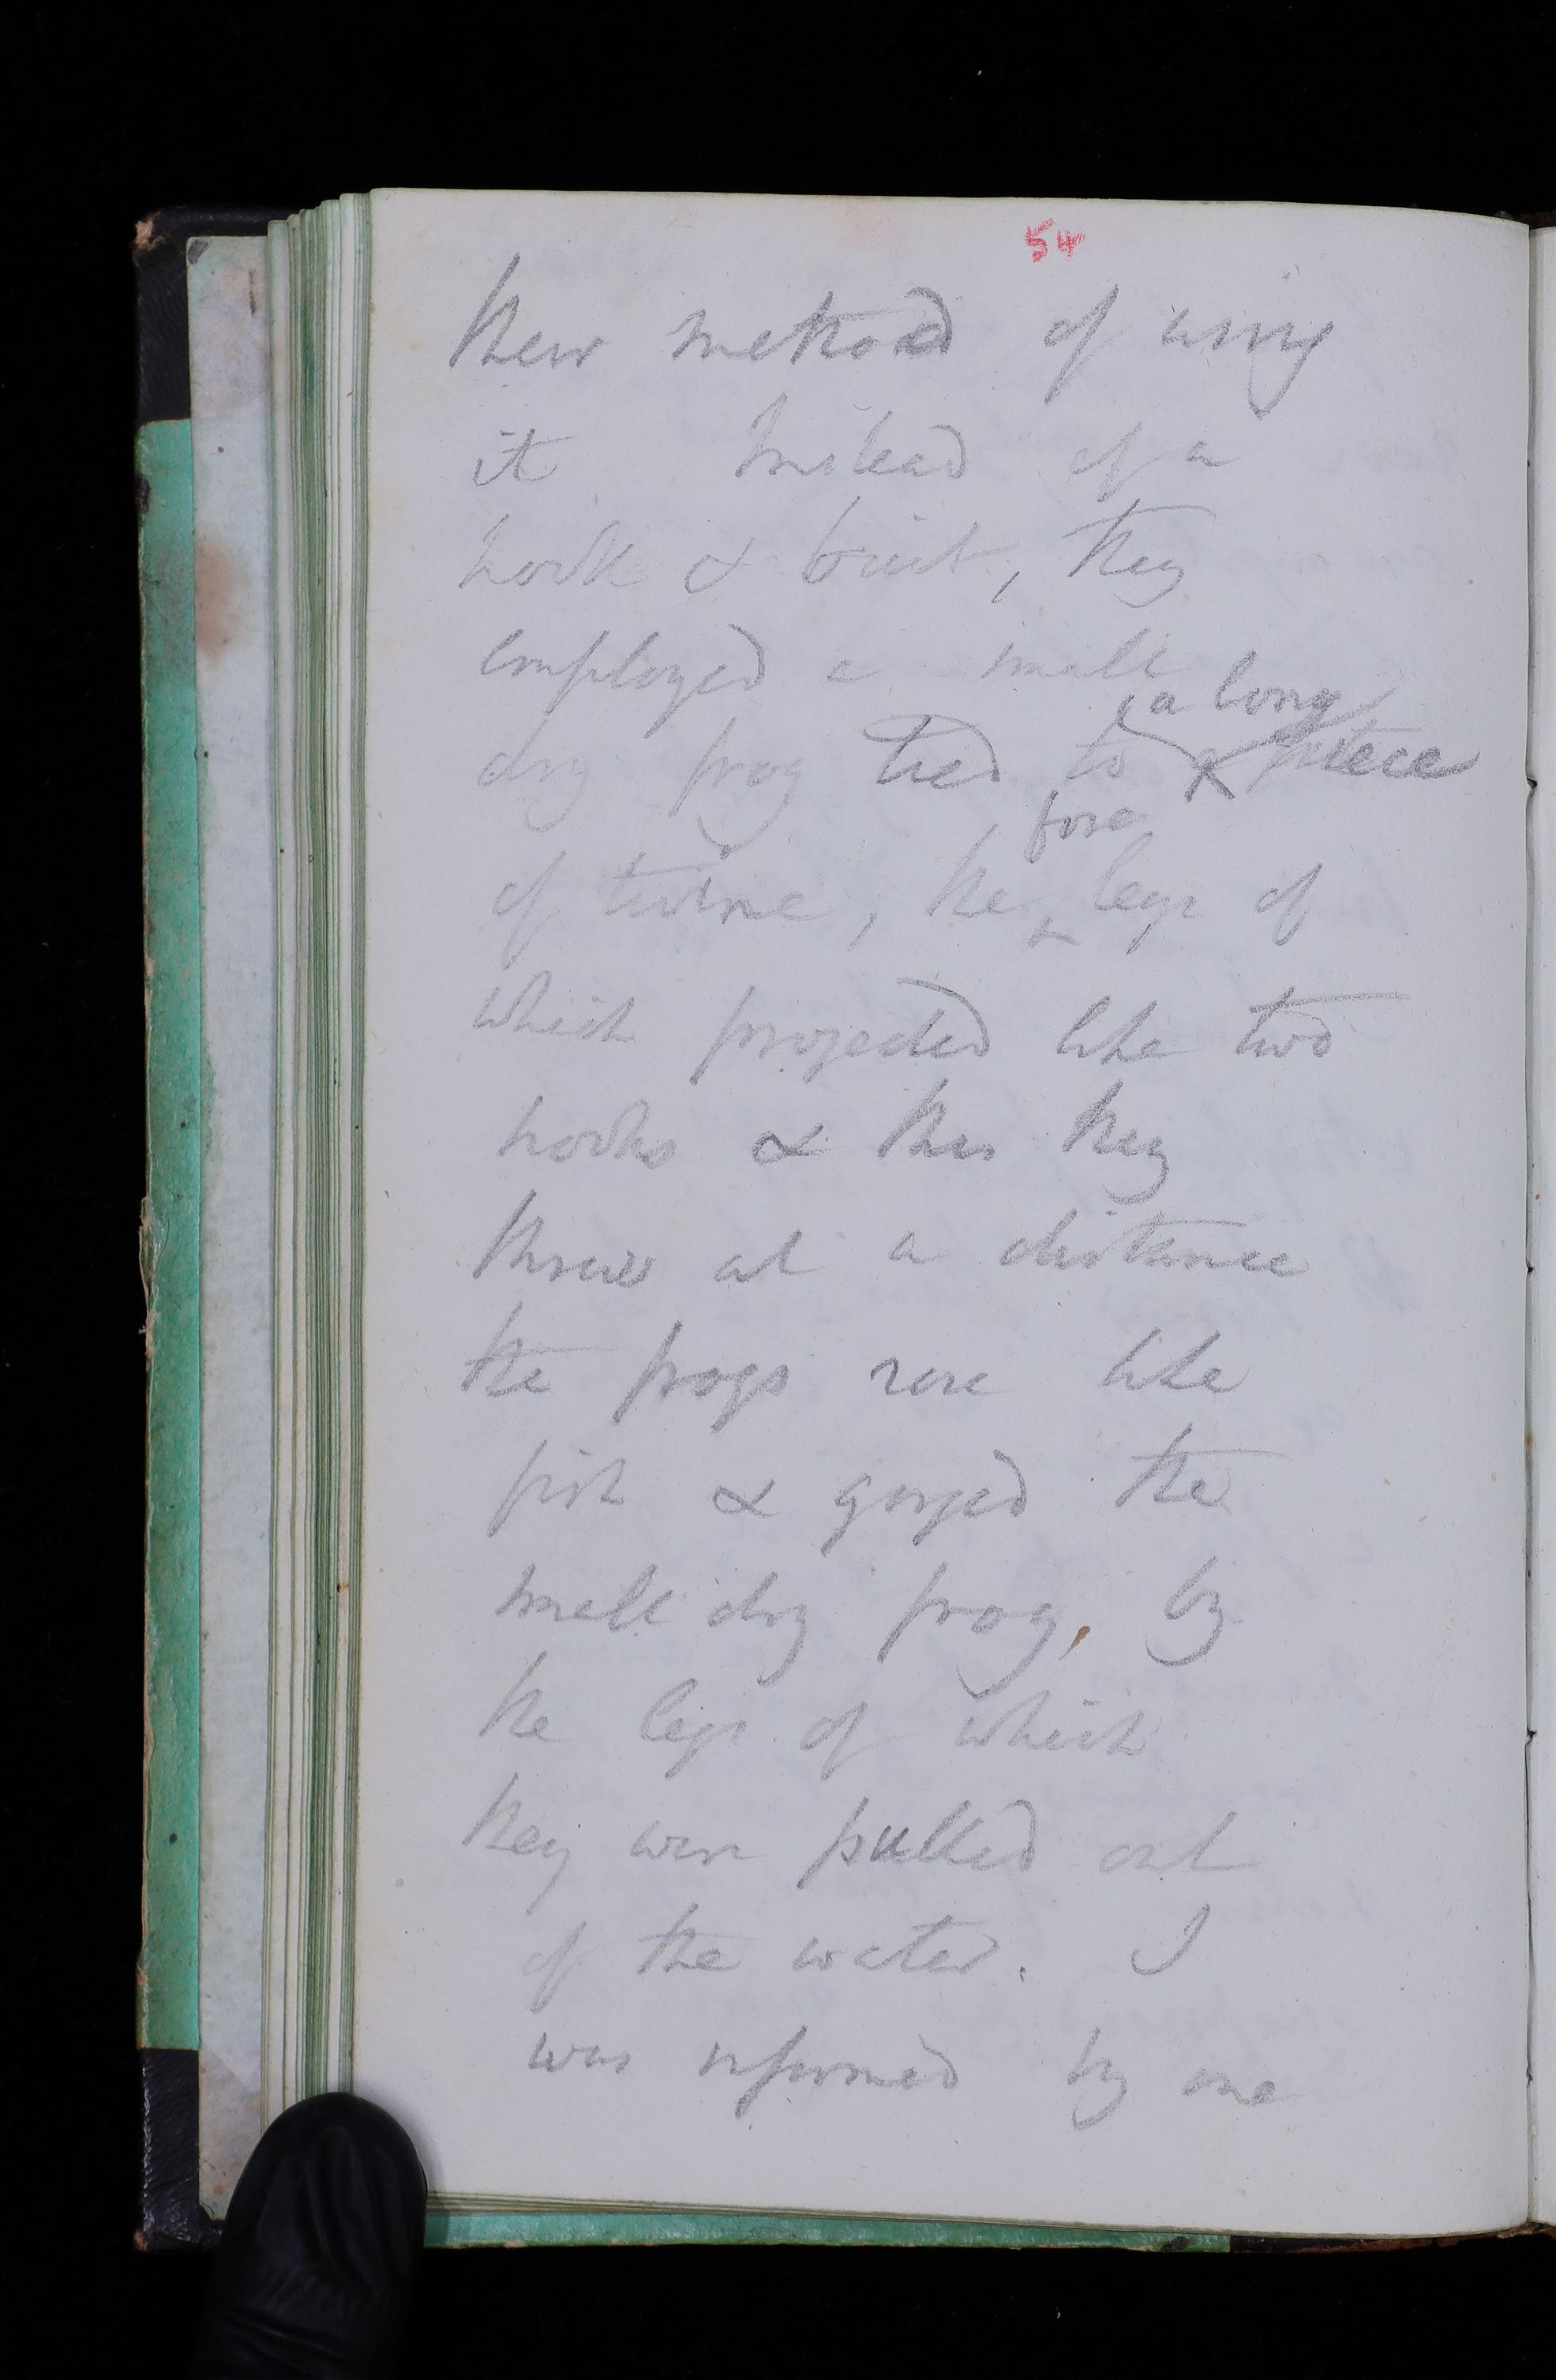 54
their method of using
it Instead of a
hook & bait, they
employed a small
a long
dry frog tied to a piece
fore
of twine, the legs of
which projected like two
hooks & this they
threw at a distance
the frogs rose like
fish & gorged the
small dry frog, by
the legs of which
they were pulled out
of the water. I
was informed by one